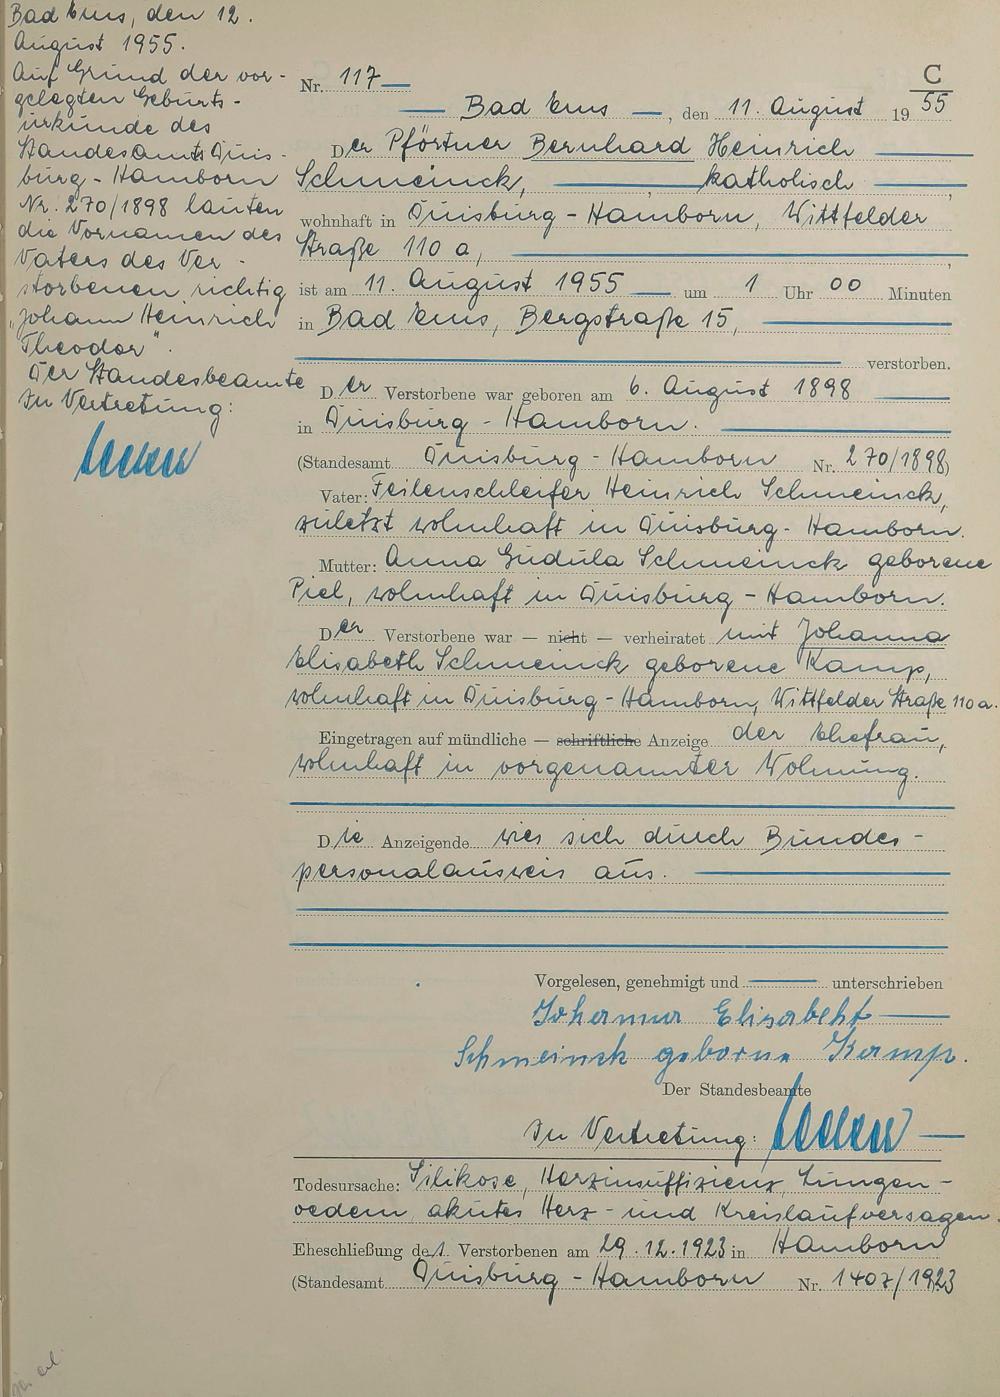 Bad Ems, den 12.
August 1955.
Auf Grund der vor-
gelegten Geburts-
urkunde des
Standesamts Duis-
burg - Hamborn
Nr. 270/1898 lauten
die Vornamen des
Vaters des Ver-
storbenen richtig
"Johann Heinrich
Theodor".
Der Standesbeamte
In Vertretung:
C
Nr. 117
Bad Ems, den 11. August 1955
Der Pförtner Bernhard Heinrich
Schmeinck, katholisch,
wohnhaft in Duisburg - Hamborn, Wittfelder
Straße 110 a,
ist am 11. August 1955 um 1 Uhr 00 Minuten
in Bad Ems, Bergstraße 15,
verstorben.
Der Verstorbene war geboren am 6. August 1898
in Duisburg - Hamborn.
(Standesamt Duisburg - Hamborn Nr. 270/1898)
Vater: Feilenschleifer Heinrich Schmeinck,
zuletzt wohnhaft in Duisburg - Hamborn.
Mutter: Anna Gudula Schmeinck geborene
Piel, wohnhaft in Duisburg - Hamborn.
Der Verstorbene war — nicht — verheiratet mit Johanna
Elisabeth Schmeinck geborene Kamp,
wohnhaft in Duisburg - Hamborn, Wittfelder Straße 110 a.
Eingetragen auf mündliche — schriftliche Anzeige der Ehefrau,
wohnhaft in vorgenannter Wohnung.
Die Anzeigende wies sich durch Bundes-
personalausweis aus.
Vorgelesen, genehmigt und unterschrieben
Johanna Elisabeht
Schmeinck geborne Kamp.
Der Standesbeamte
In Vertretung:
Todesursache: Silikose, Herzinsuffizienz, Lungen-
oedem, akutes Herz - und Kreislaufversagen.
Eheschließung des Verstorbenen am 29.12.1923 in Hamborn
(Standesamt Duisburg - Hamborn Nr. 1407/1923